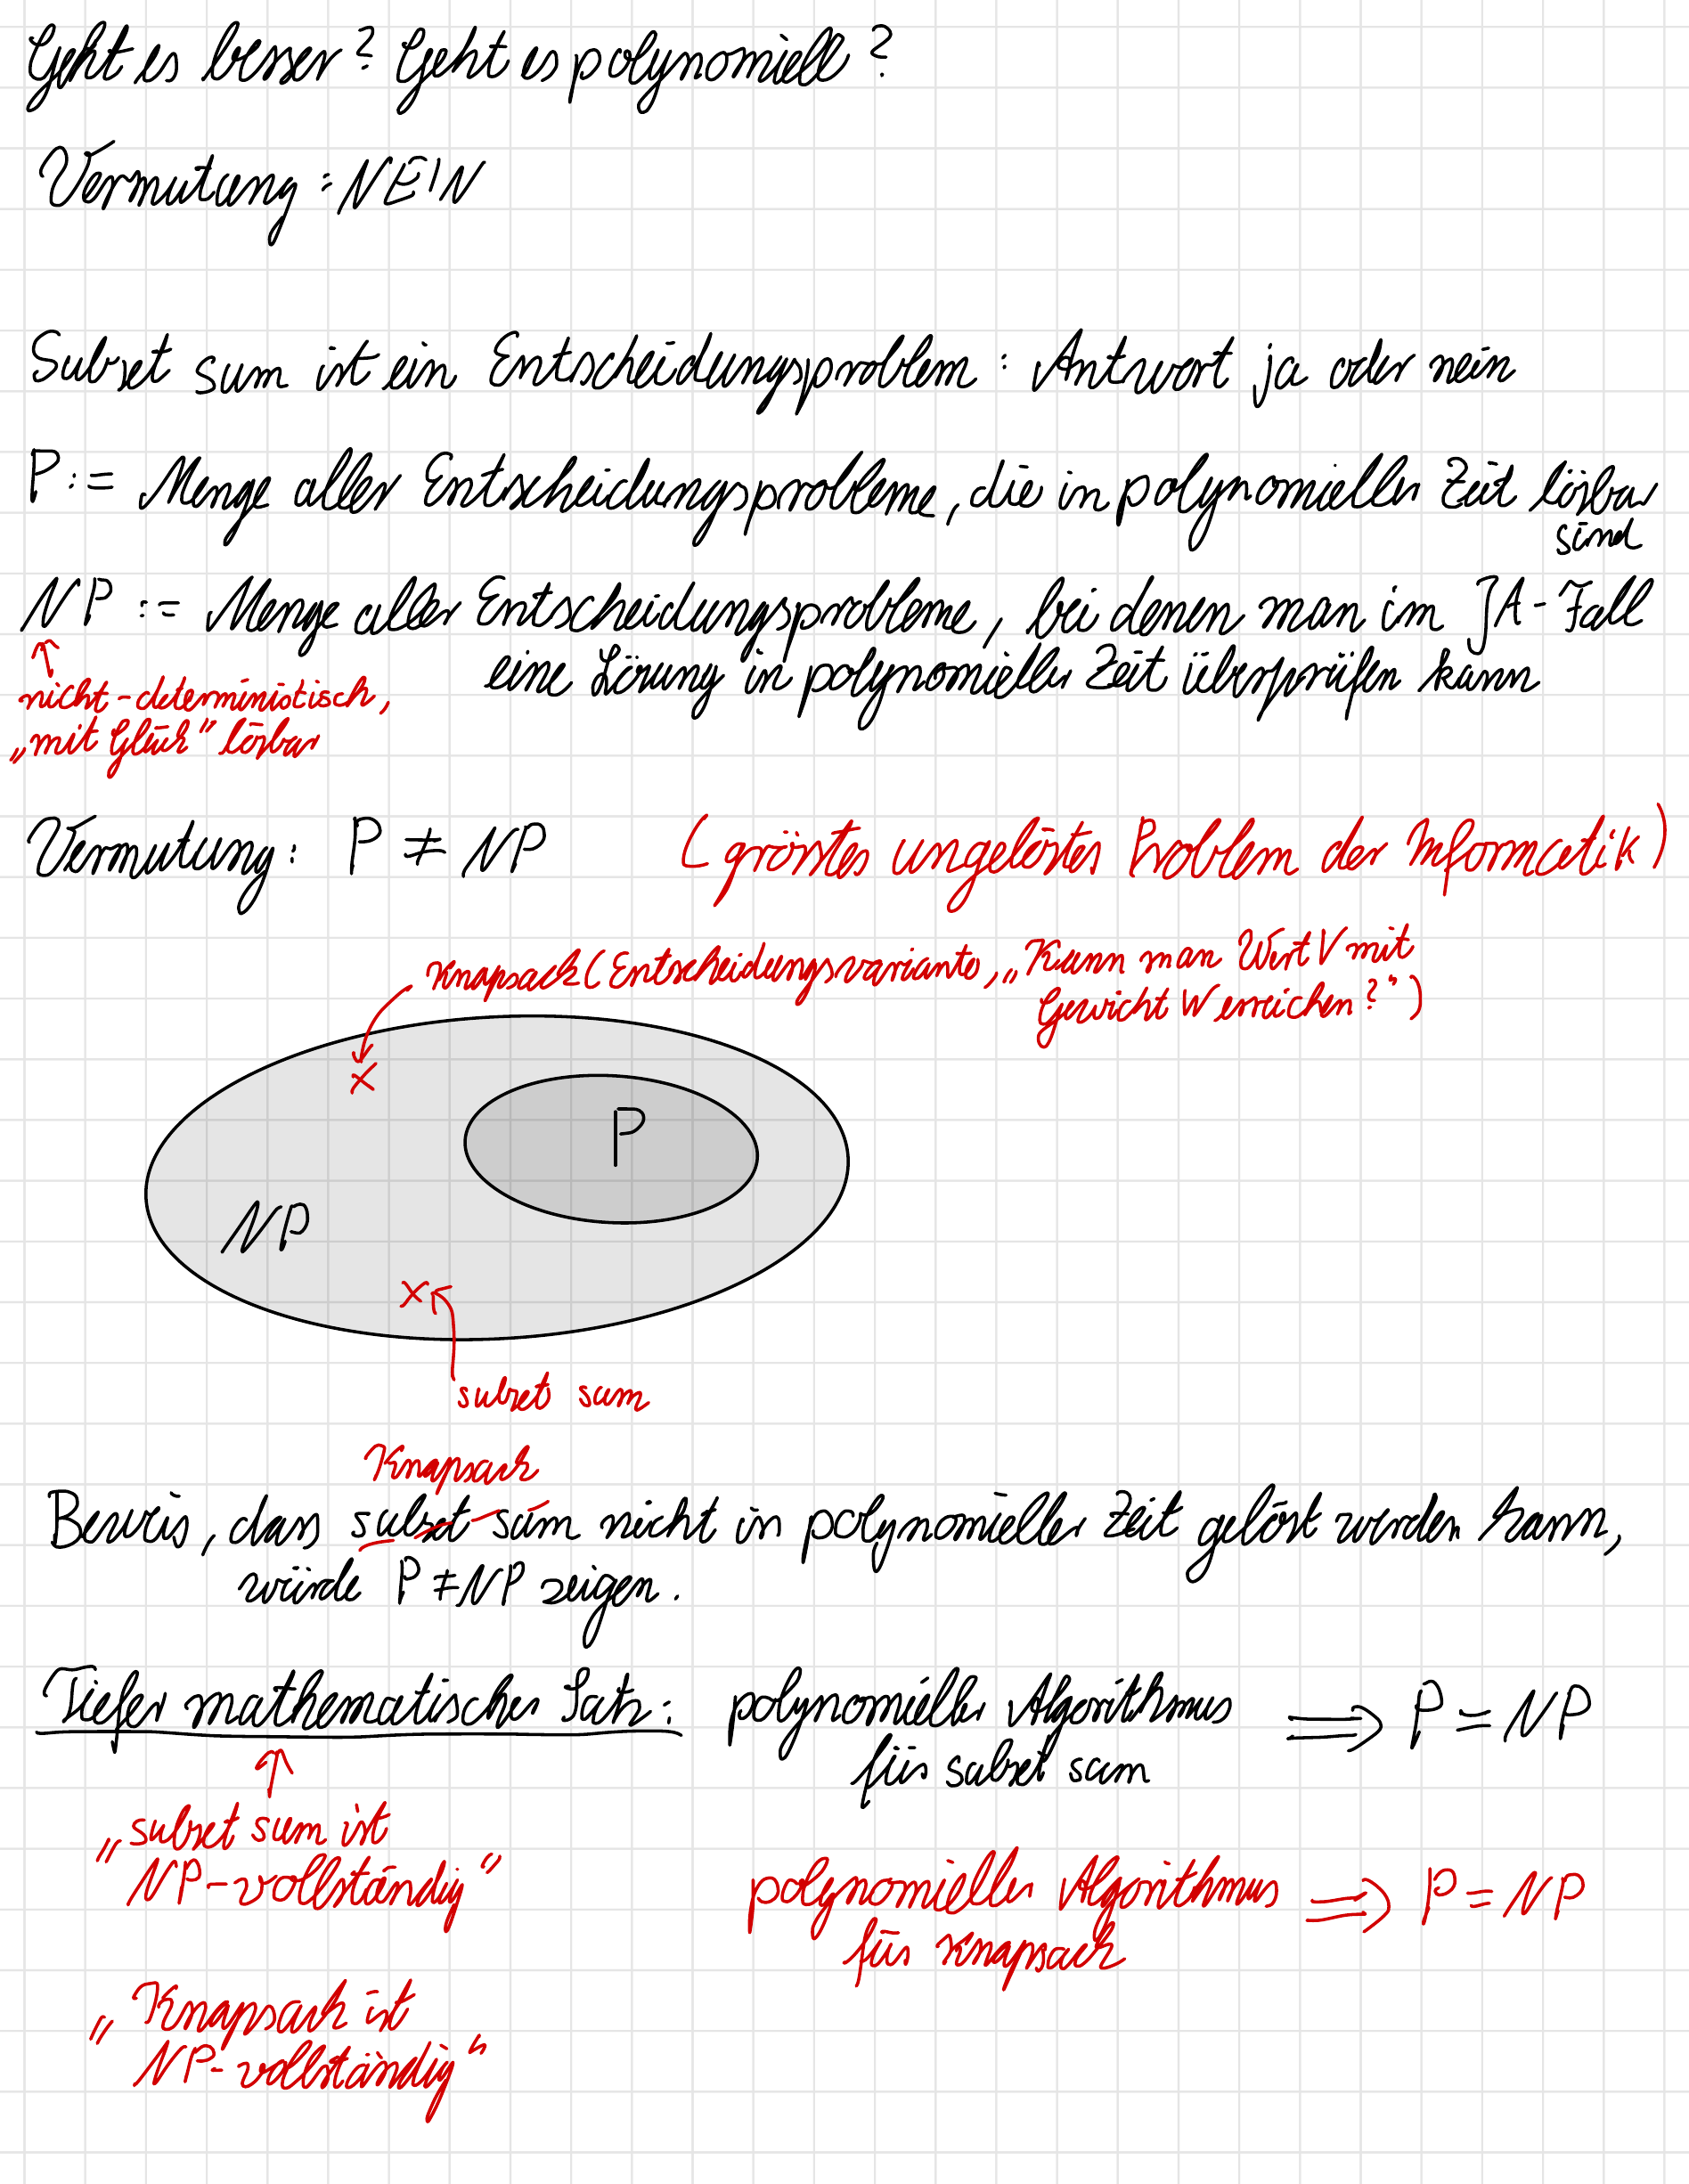 Geht es besser? Geht es polynomiell?
Vermutung: NEIN
Subset sum ist ein Entscheidungsproblem: Antwort ja oder nein
P := Menge aller Entscheidungsprobleme, die in polynomieller Zeit lösbar
sind
NP := Menge aller Entscheidungsprobleme, bei denen man im JA-Fall
eine Lösung in polynomieller Zeit überprüfen kann
↑
nicht-deterministisch,
„mit Glück" lösbar
Vermutung: P ≠ NP (grösstes ungelöstes Problem der Informatik)
Knapsack (Entscheidungsvariante, „Kann man Wert V mit
Gewicht W erreichen?")
x
P
NP
x
subset sum
Knapsack
Beweis, dass subset sum nicht in polynomieller Zeit gelöst werden kann,
würde P ≠ NP zeigen.
Tiefer mathematischer Satz: polynomieller Algorithmus ⟹ P = NP
für subset sum
↑
„subset sum ist
NP-vollständig"
polynomieller Algorithmus ⟹ P = NP
für Knapsack
„Knapsack ist
NP-vollständig"